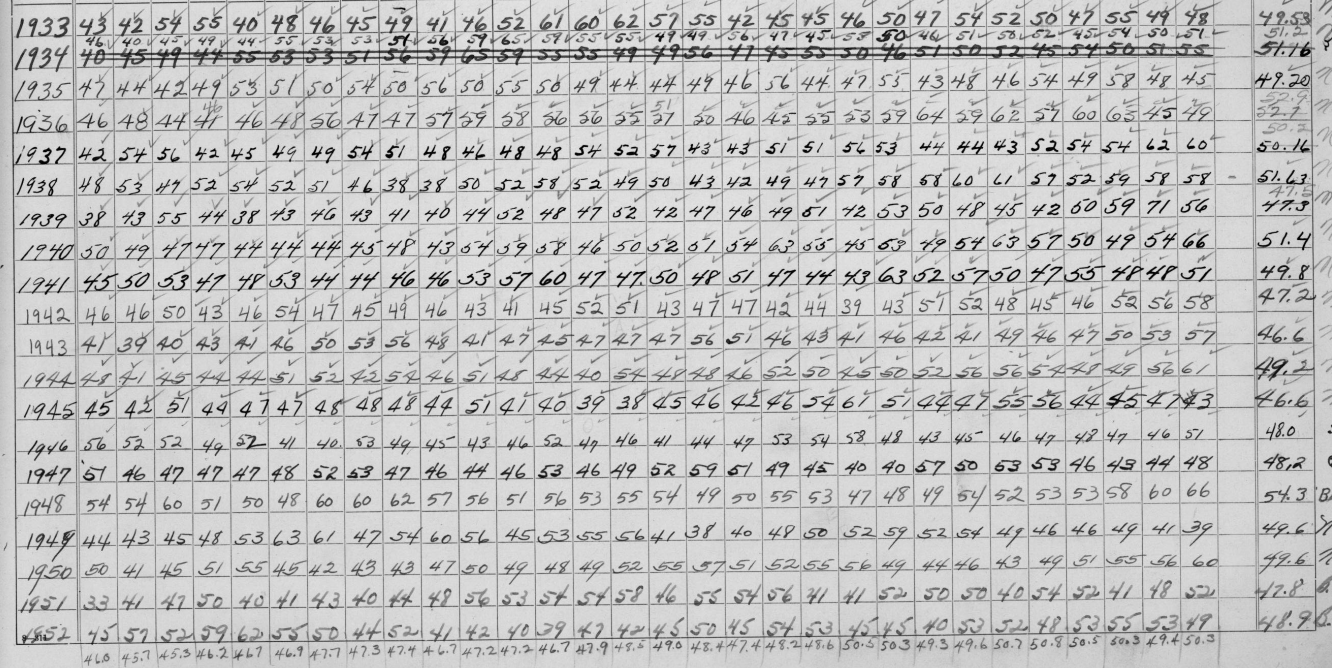 1933 43 42 54 55 40 48 46 45 49 41 46 52 61 60 62 57 55 42 45 45 46 50 47 54 52 50 47 55 49 48 49.53
46 40 45 49 44 55 53 53 51 56 59 65 59 55 55 49 49 56 47 45 55 50 46 51 50 52 45 54 50 51 51.2
1934 40 45 49 44 55 53 53 51 56 59 65 59 55 55 49 49 56 47 45 55 50 46 51 50 52 45 54 50 51 55 51.16
1935 47 44 42 49 53 51 50 54 50 56 50 55 50 49 44 44 49 46 56 44 47 55 43 48 46 54 49 58 48 45 49.20
1936 46 48 44 46 48 56 47 47 57 59 58 56 56 55 50 46 45 55 53 59 64 59 62 57 60 65 45 49
50.2
1937 42 54 56 42 45 49 49 54 51 48 46 48 48 54 52 57 43 43 51 51 56 53 44 44 43 52 54 54 62 60 50.16
1938 48 53 47 52 54 52 51 46 38 38 50 52 58 52 49 50 43 42 49 47 57 58 58 60 61 57 52 59 58 58 51.63
47.5
1939 38 43 55 44 38 43 46 43 41 40 44 52 48 47 52 42 47 46 49 51 42 53 50 48 45 42 50 59 71 56 47.3
1940 50 49 47 47 44 44 44 45 48 43 54 59 58 46 50 52 51 54 63 55 45 53 49 54 63 57 50 49 54 66 51.4
1941 45 50 53 47 48 53 44 44 46 46 53 57 60 47 47 50 48 51 47 44 43 63 52 57 50 47 55 48 48 51 49.8
1942 46 46 50 43 46 54 47 45 49 46 43 41 45 52 51 43 47 47 42 44 39 43 51 52 48 45 46 52 56 58 47.2
1943 41 39 40 43 41 46 50 53 56 48 41 47 45 47 47 47 56 51 46 43 41 46 42 41 49 46 47 50 53 57 46.6
1944 48 41 45 44 44 51 52 42 54 46 51 48 44 40 54 48 48 46 52 50 45 50 52 56 56 54 48 49 56 61 49.2
1945 45 42 51 49 47 47 48 48 48 44 51 41 40 39 38 45 46 42 46 54 61 51 44 47 55 56 44 45 47 43 46.6
1946 56 52 52 49 52 41 40 53 49 45 43 46 52 47 46 41 44 47 53 54 58 48 43 45 46 47 48 47 46 51 48.0
1947 51 46 47 47 47 48 52 53 47 46 44 46 53 46 49 52 59 51 49 45 40 40 57 50 53 53 46 43 44 48 48.2
1948 54 54 60 51 50 48 60 60 62 57 56 51 56 53 55 54 49 50 55 53 47 48 49 54 52 53 53 58 60 66 54.3
1949 44 43 45 48 53 63 61 47 54 60 56 45 53 55 56 41 38 40 48 50 52 59 52 54 49 46 46 49 41 39 49.6
1950 50 41 45 51 55 45 42 43 43 47 50 49 48 49 52 55 57 51 52 55 56 49 44 46 43 49 51 55 56 60 49.6
1951 33 41 47 50 40 41 43 40 44 48 56 53 54 54 58 46 55 54 56 41 41 52 50 50 40 54 52 41 48 52 47.8
1952 45 57 52 59 62 55 50 44 52 41 42 40 39 47 42 45 50 45 54 53 45 45 40 53 52 48 53 55 53 49 48.9
46.0 45.7 45.3 46.2 46.7 46.9 47.7 47.3 47.4 46.7 47.2 47.2 46.7 47.9 48.5 49.0 48.4 47.4 48.2 48.6 50.5 50.3 49.3 49.6 50.7 50.8 50.5 50.3 49.4 50.3